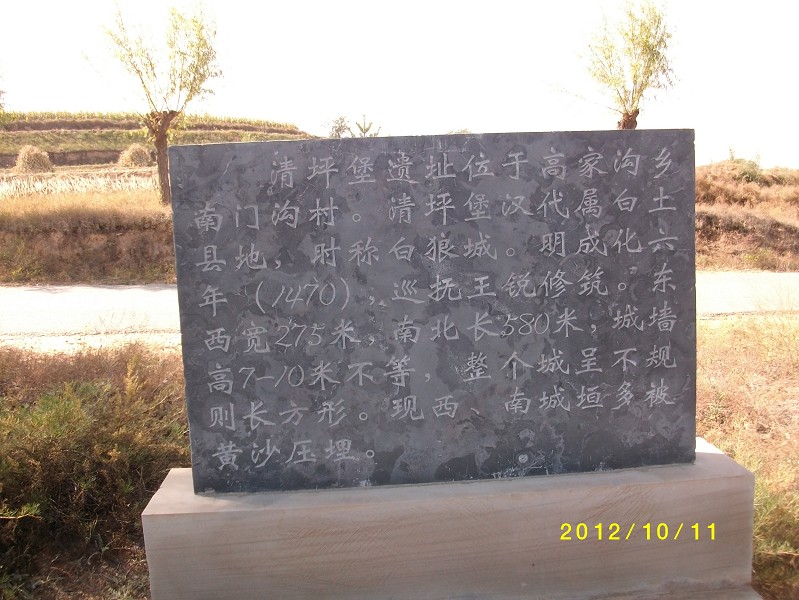 清坪堡遗址位于高家沟乡
南门沟村。清坪堡汉代属白土
县地，时称白狼城。明成化六
年（1470），巡抚王锐修筑。东
西宽275米，南北长580米，城墙
高7-10米不等，整个城呈不规
则长方形。现西、南城垣多被
黄沙压埋。
2012/10/11